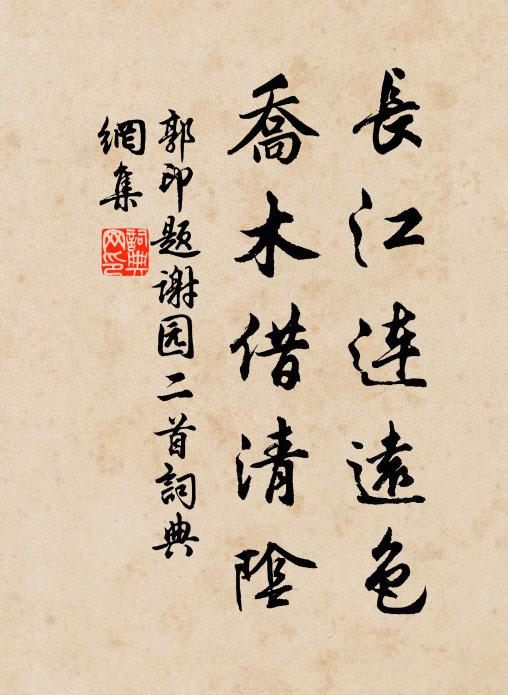 長江連遠色
喬木借清陰
郭印题谢园二首詞典
網集
詞典
网印